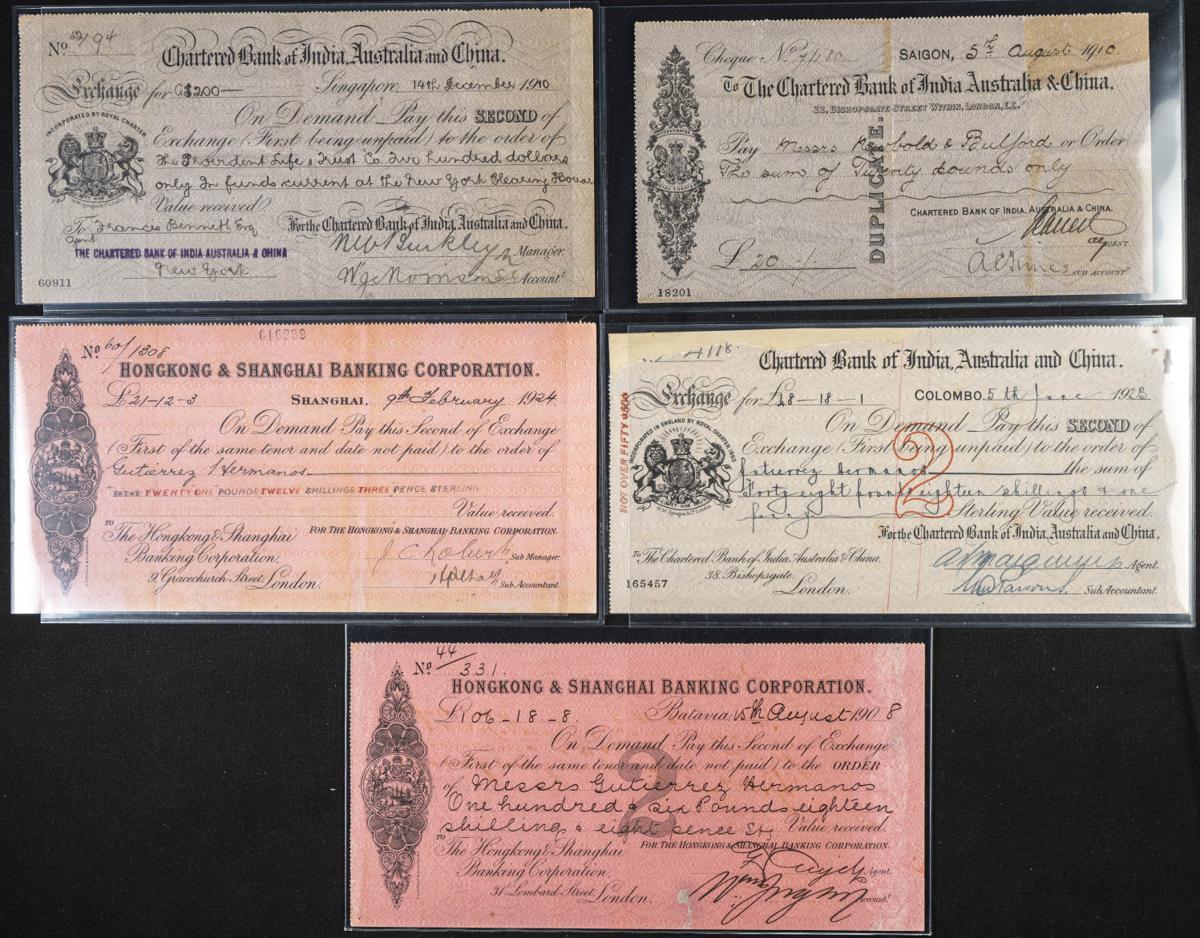 No 52/194
Chartered Bank of India, Australia and China.
Exchange for G$200— Singapore, 14th December 1910
On Demand Pay this SECOND of
Exchange (First being unpaid) to the order of
The Provident Life & Trust Co. Two hundred dollars
only In funds current at the New York Clearing House
Value received.
INCORPORATED BY ROYAL CHARTER
To Francis Bennett Esq
For the Chartered Bank of India, Australia and China.
Agent
THE CHARTERED BANK OF INDIA AUSTRALIA & CHINA
Manager.
New York
Account
60911
Cheque No SAIGON, 5th August 1910
To The Chartered Bank of India Australia & China.
32, BISHOPSGATE STREET WITHIN, LONDON, E.C.
Pay Messrs & Pulford or Order
The sum of Twenty pounds only
DUPLICATE.
CHARTERED BANK OF INDIA, AUSTRALIA & CHINA.
AGENT.
£ 20-/-
SUB ACCOUNT
18201
No 60/1308
HONGKONG & SHANGHAI BANKING CORPORATION.
£21-12-3 SHANGHAI, 9th February 1924.
On Demand Pay this Second of Exchange
(First of the same tenor and date not paid) to the order of
Gutierrez Hermanos
TWENTY ONE POUNDS TWELVE SHILLINGS THREE PENCE STERLING
Value received.
TO
The Hongkong & Shanghai FOR THE HONGKONG & SHANGHAI BANKING CORPORATION.
Banking Corporation, Sub Manager.
9, Gracechurch Street, London. Sub Accountant.
4118
Chartered Bank of India, Australia and China.
Exchange for £48-18-1 COLOMBO, 5th June 1923
On Demand Pay this SECOND of
Exchange (First being unpaid) to the order of
Gutierrez Hermanos the sum of
Forty eight pounds eighteen shillings & one
penny Sterling Value received.
2
NOT OVER FIFTY £50£
INCORPORATED IN ENGLAND BY ROYAL CHARTER 1853
For the Chartered Bank of India, Australia and China.
To The Chartered Bank of India Australia & China,
38, Bishopsgate, Agent.
London. Sub Accountant.
165457
No 44/331.
HONGKONG & SHANGHAI BANKING CORPORATION.
£106-18-8. Batavia, 15th August 1908
On Demand Pay this Second of Exchange
(First of the same tenor and date not paid) to the ORDER
of Messrs Gutierrez Hermanos
One hundred & six Pounds eighteen
shillings & eight pence Stg Value received.
2
TO
The Hongkong & Shanghai FOR THE HONGKONG & SHANGHAI BANKING CORPORATION.
Banking Corporation, Agent.
31 Lombard Street, London. Account